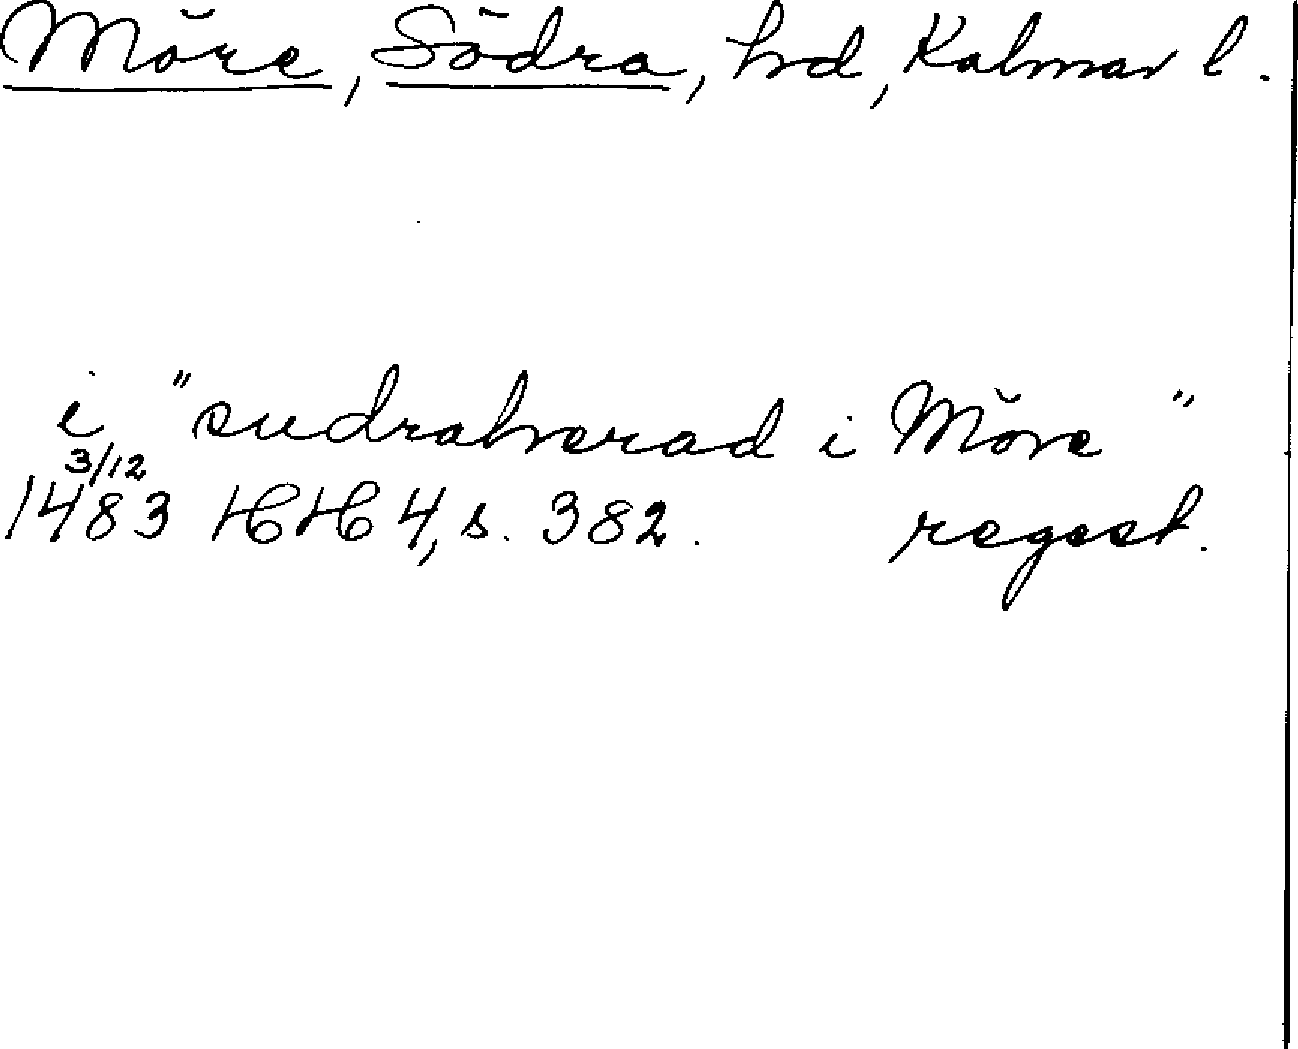 Möre, Södra, hd, Kalmar l.
i "sudraherad i Möre"
3/12
1483 HH 4, s. 382. regest.